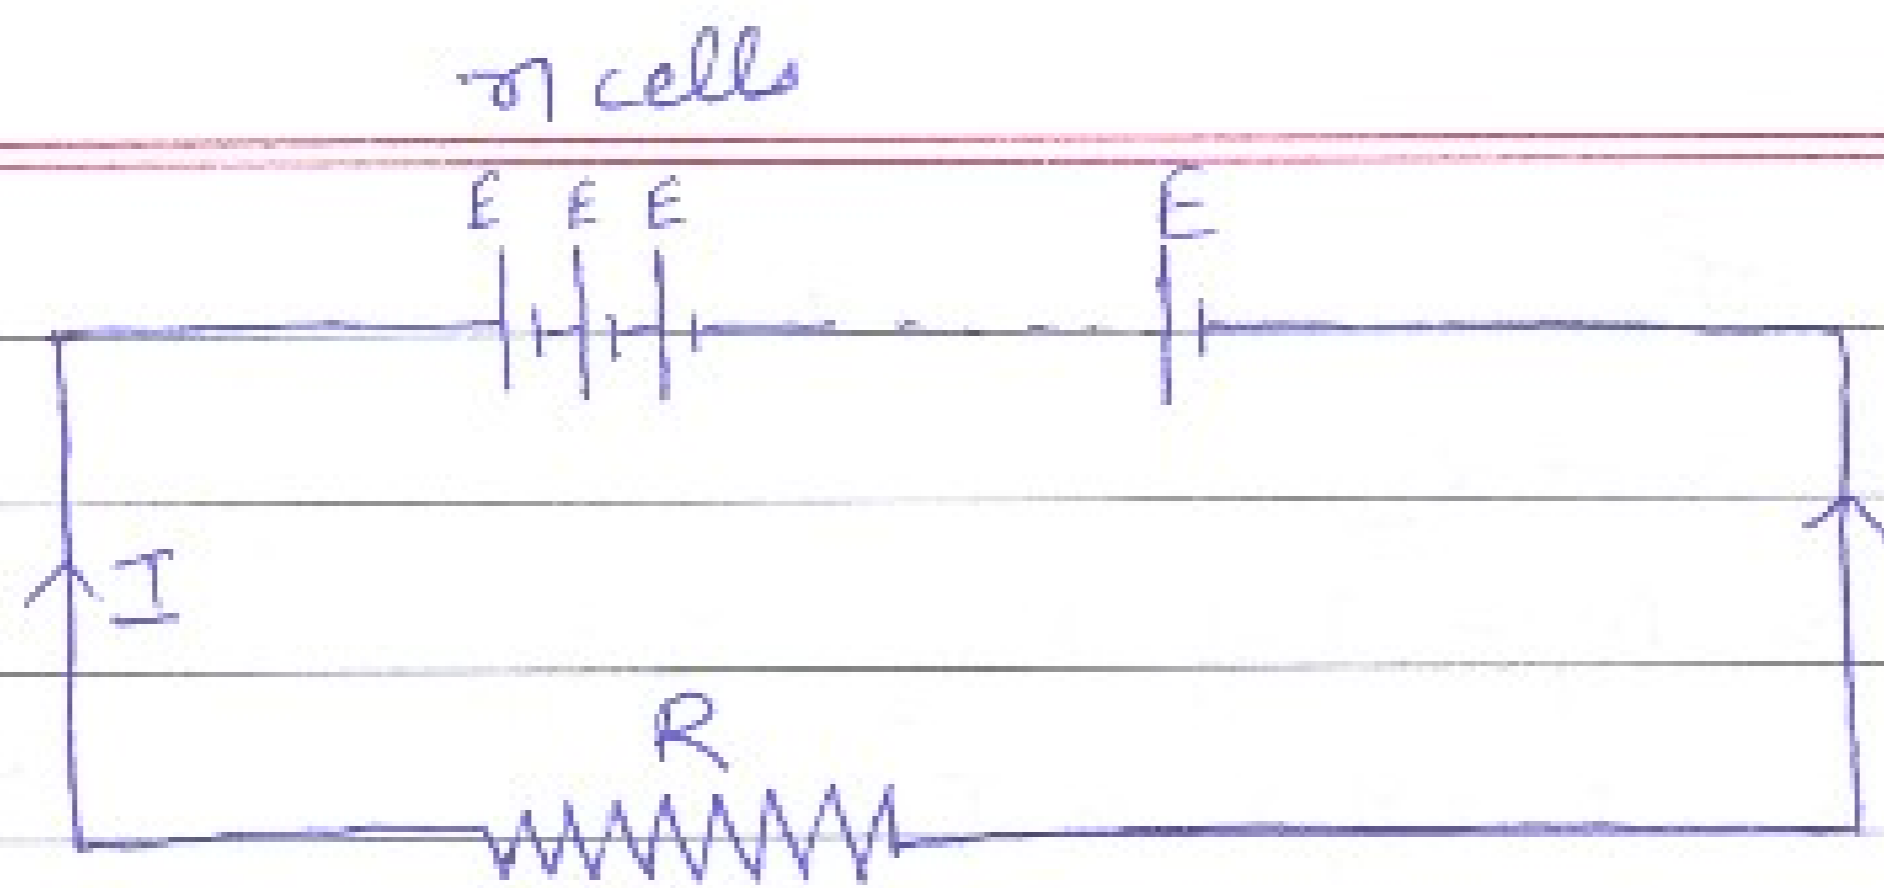 n cells
E E E E
I
R